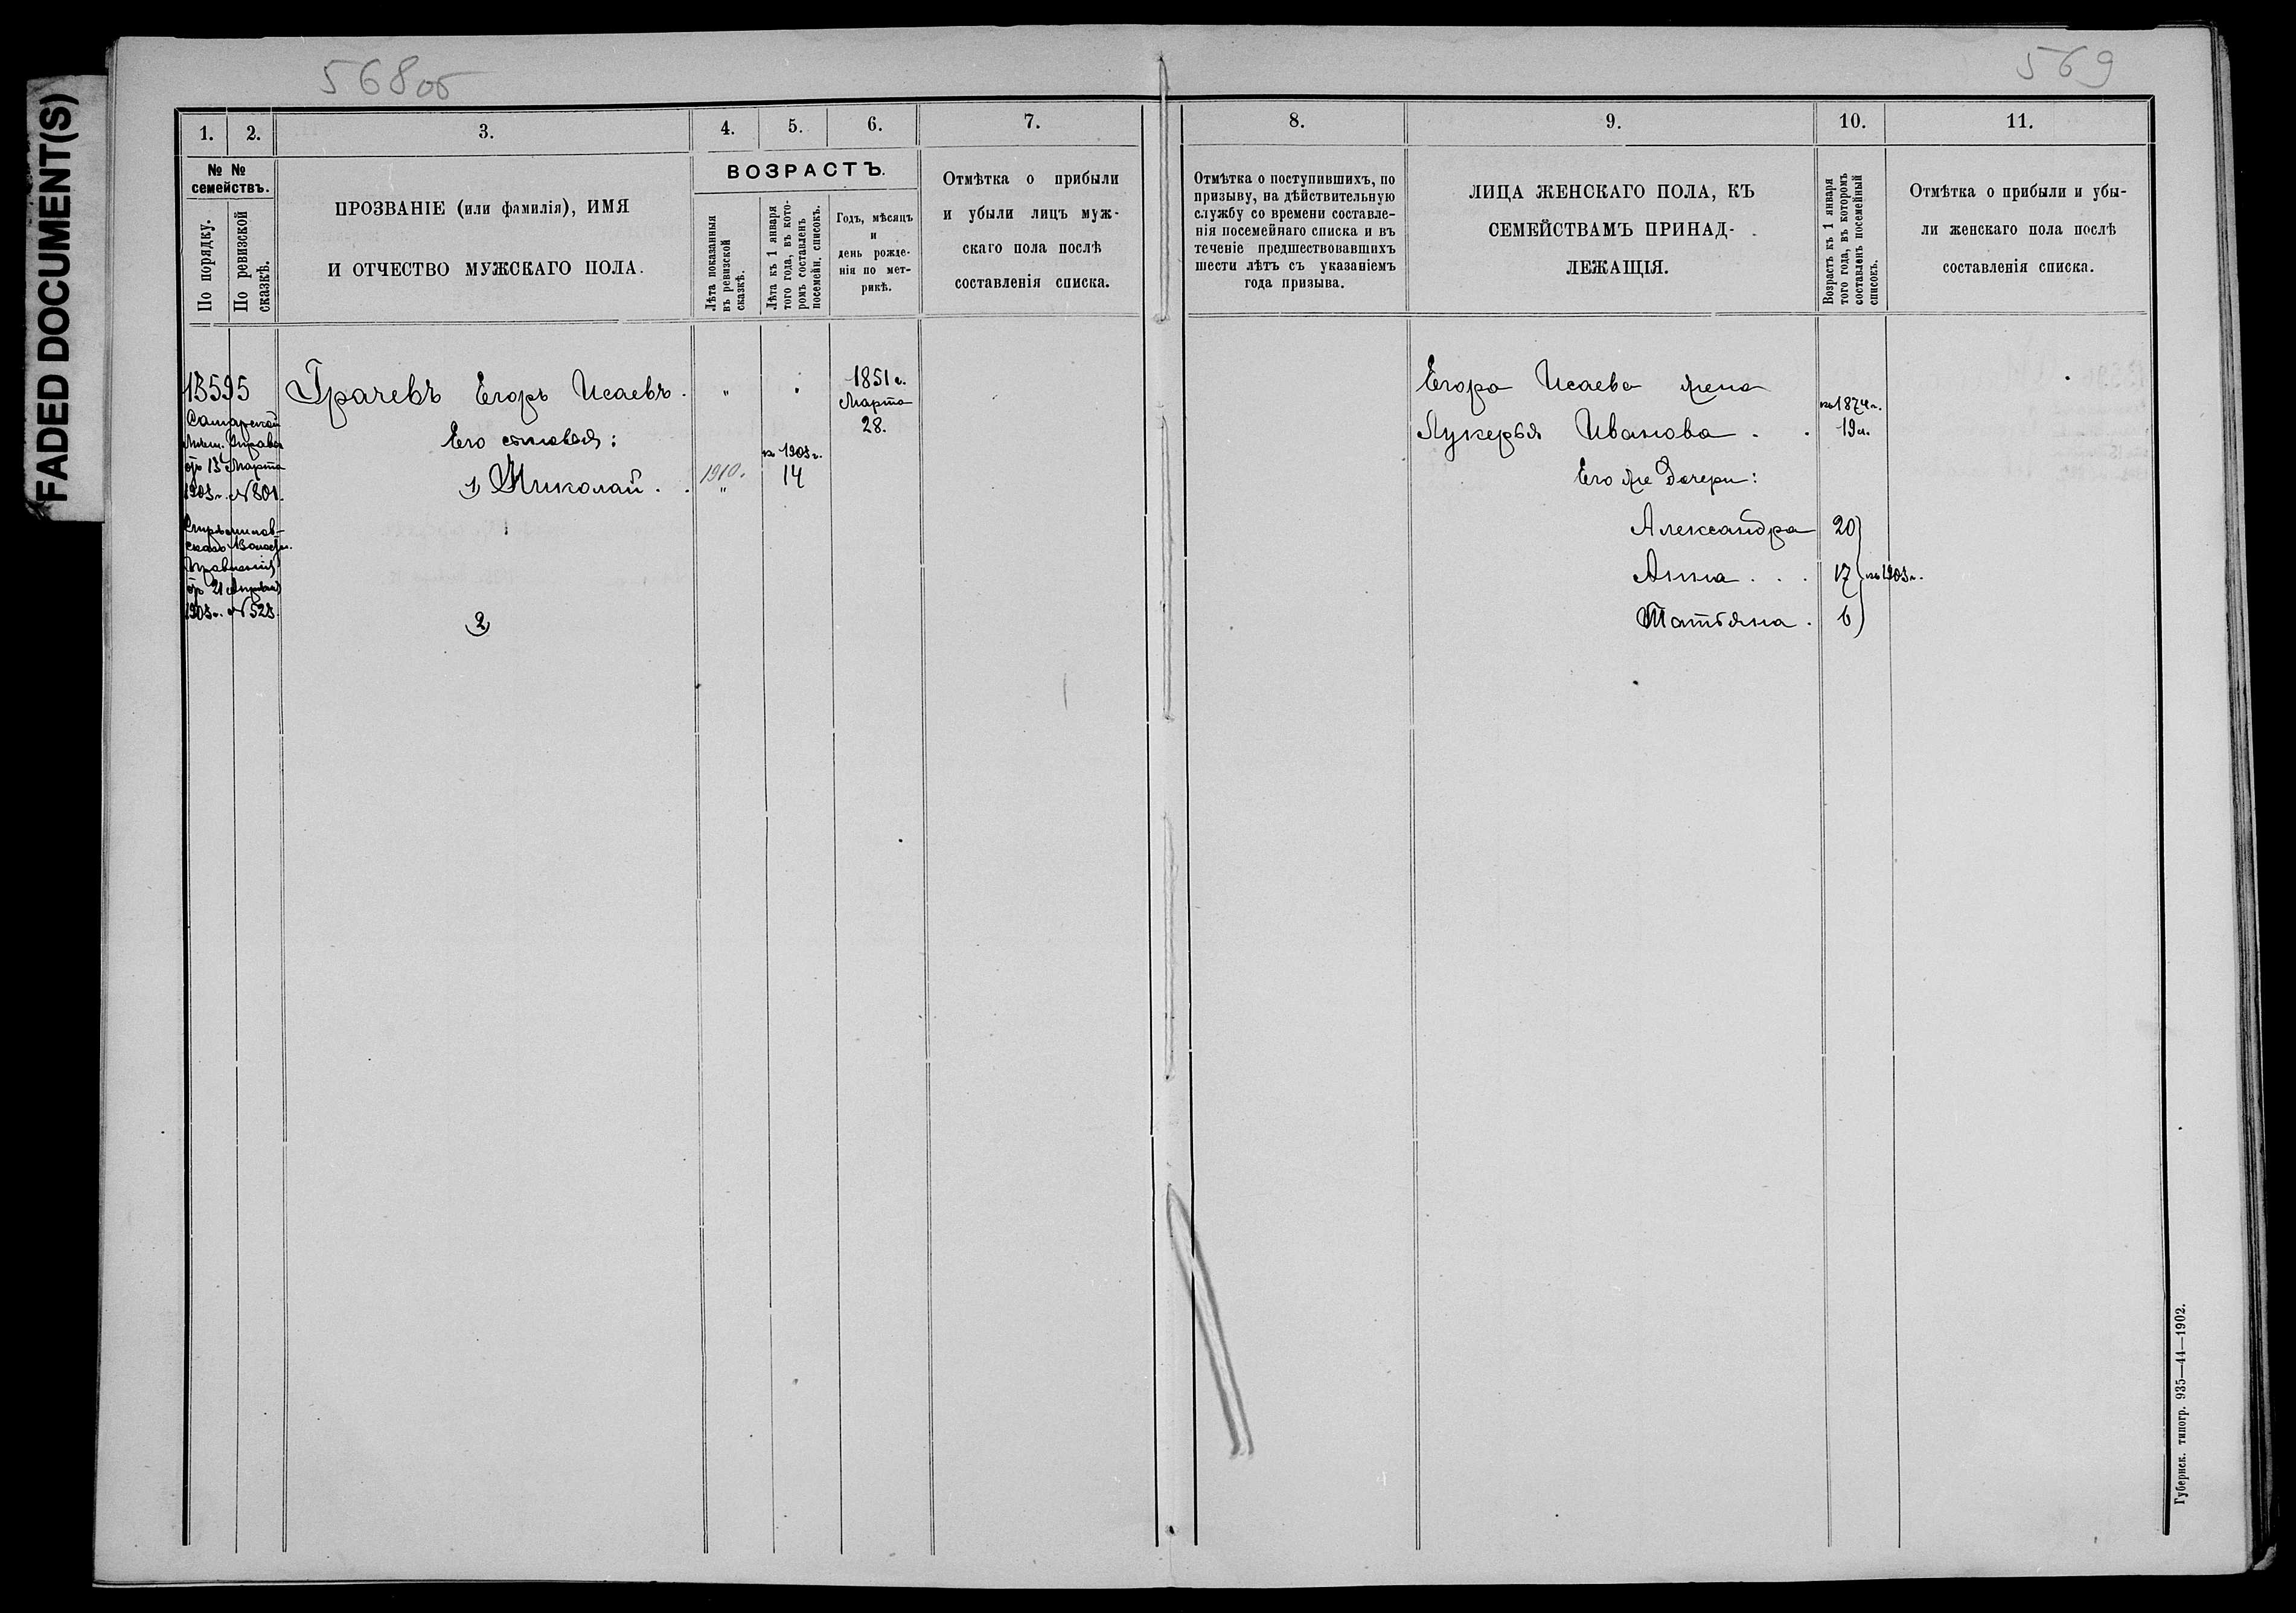 FADED DOCUMENT(S)
568 об
569
1.
2.
3.
4.
5.
6.
7.
8.
9.
10.
11.
№ №
семействъ.
По порядку.
По ревизской
сказкѣ.
ПРОЗВАНІЕ (или фамилія), ИМЯ
И ОТЧЕСТВО МУЖСКАГО ПОЛА.
ВОЗРАСТЪ.
Лѣта показанныя
въ ревизской
сказкѣ.
Лѣта къ 1 января
того года, въ кото-
ромъ составленъ
посемейн. списокъ.
Годъ, мѣсяцъ
и
день рожде-
нія по мет-
рикѣ.
Отмѣтка о прибыли
и убыли лицъ муж-
скаго пола послѣ
составленія списка.
Отмѣтка о поступившихъ, по
призыву, на дѣйствительную
службу со времени составле-
нія посемейнаго списка и въ
теченіе предшествовавшихъ
шести лѣтъ съ указаніемъ
года призыва.
ЛИЦА ЖЕНСКАГО ПОЛА, КЪ
СЕМЕЙСТВАМЪ ПРИНАД-
ЛЕЖАЩІЯ.
Возрастъ къ 1 января
того года, въ которомъ
составленъ посемейный
списокъ.
Отмѣтка о прибыли и убы-
ли женскаго пола послѣ
составленія списка.
13595
Самарской
Мѣщ. Управы
отъ 13 Марта
1903 г. № 801.
скаго Волостн.
Правленія
отъ 21 Апрѣля
1903 г. № 528.
Грачевъ Егоръ Исаевъ. " "
1851 г.
Марта
28.
Его сыновья:
къ 1903 г.
1, Николай . . 1910. " 14
2,
Егора Исаева жена
къ 1874 г.
Лукерья Иванова . . 19 л.
Его же Дочери:
Александра 20
Анна . . . 17 къ 1903 г.
Татьяна . 6
Губернск. типогр. 935—44—1902.